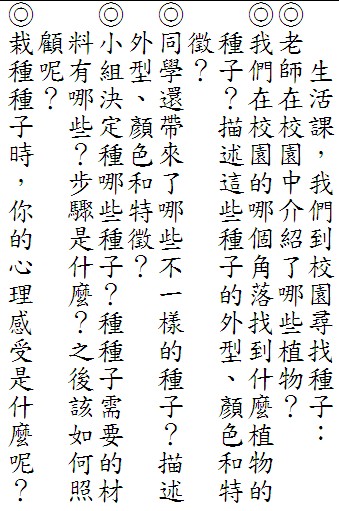 生活課，我們到校園尋找種子：
◎老師在校園中介紹了哪些植物？
◎我們在校園的哪個角落找到什麼植物的
種子？描述這些種子的外型、顏色和特
徵？
◎同學還帶來了哪些不一樣的種子？描述
外型、顏色和特徵？
◎小組決定種哪些種子？種種子需要的材
料有哪些？步驟是什麼？之後該如何照
顧呢？
◎栽種種子時，你的心理感受是什麼呢？